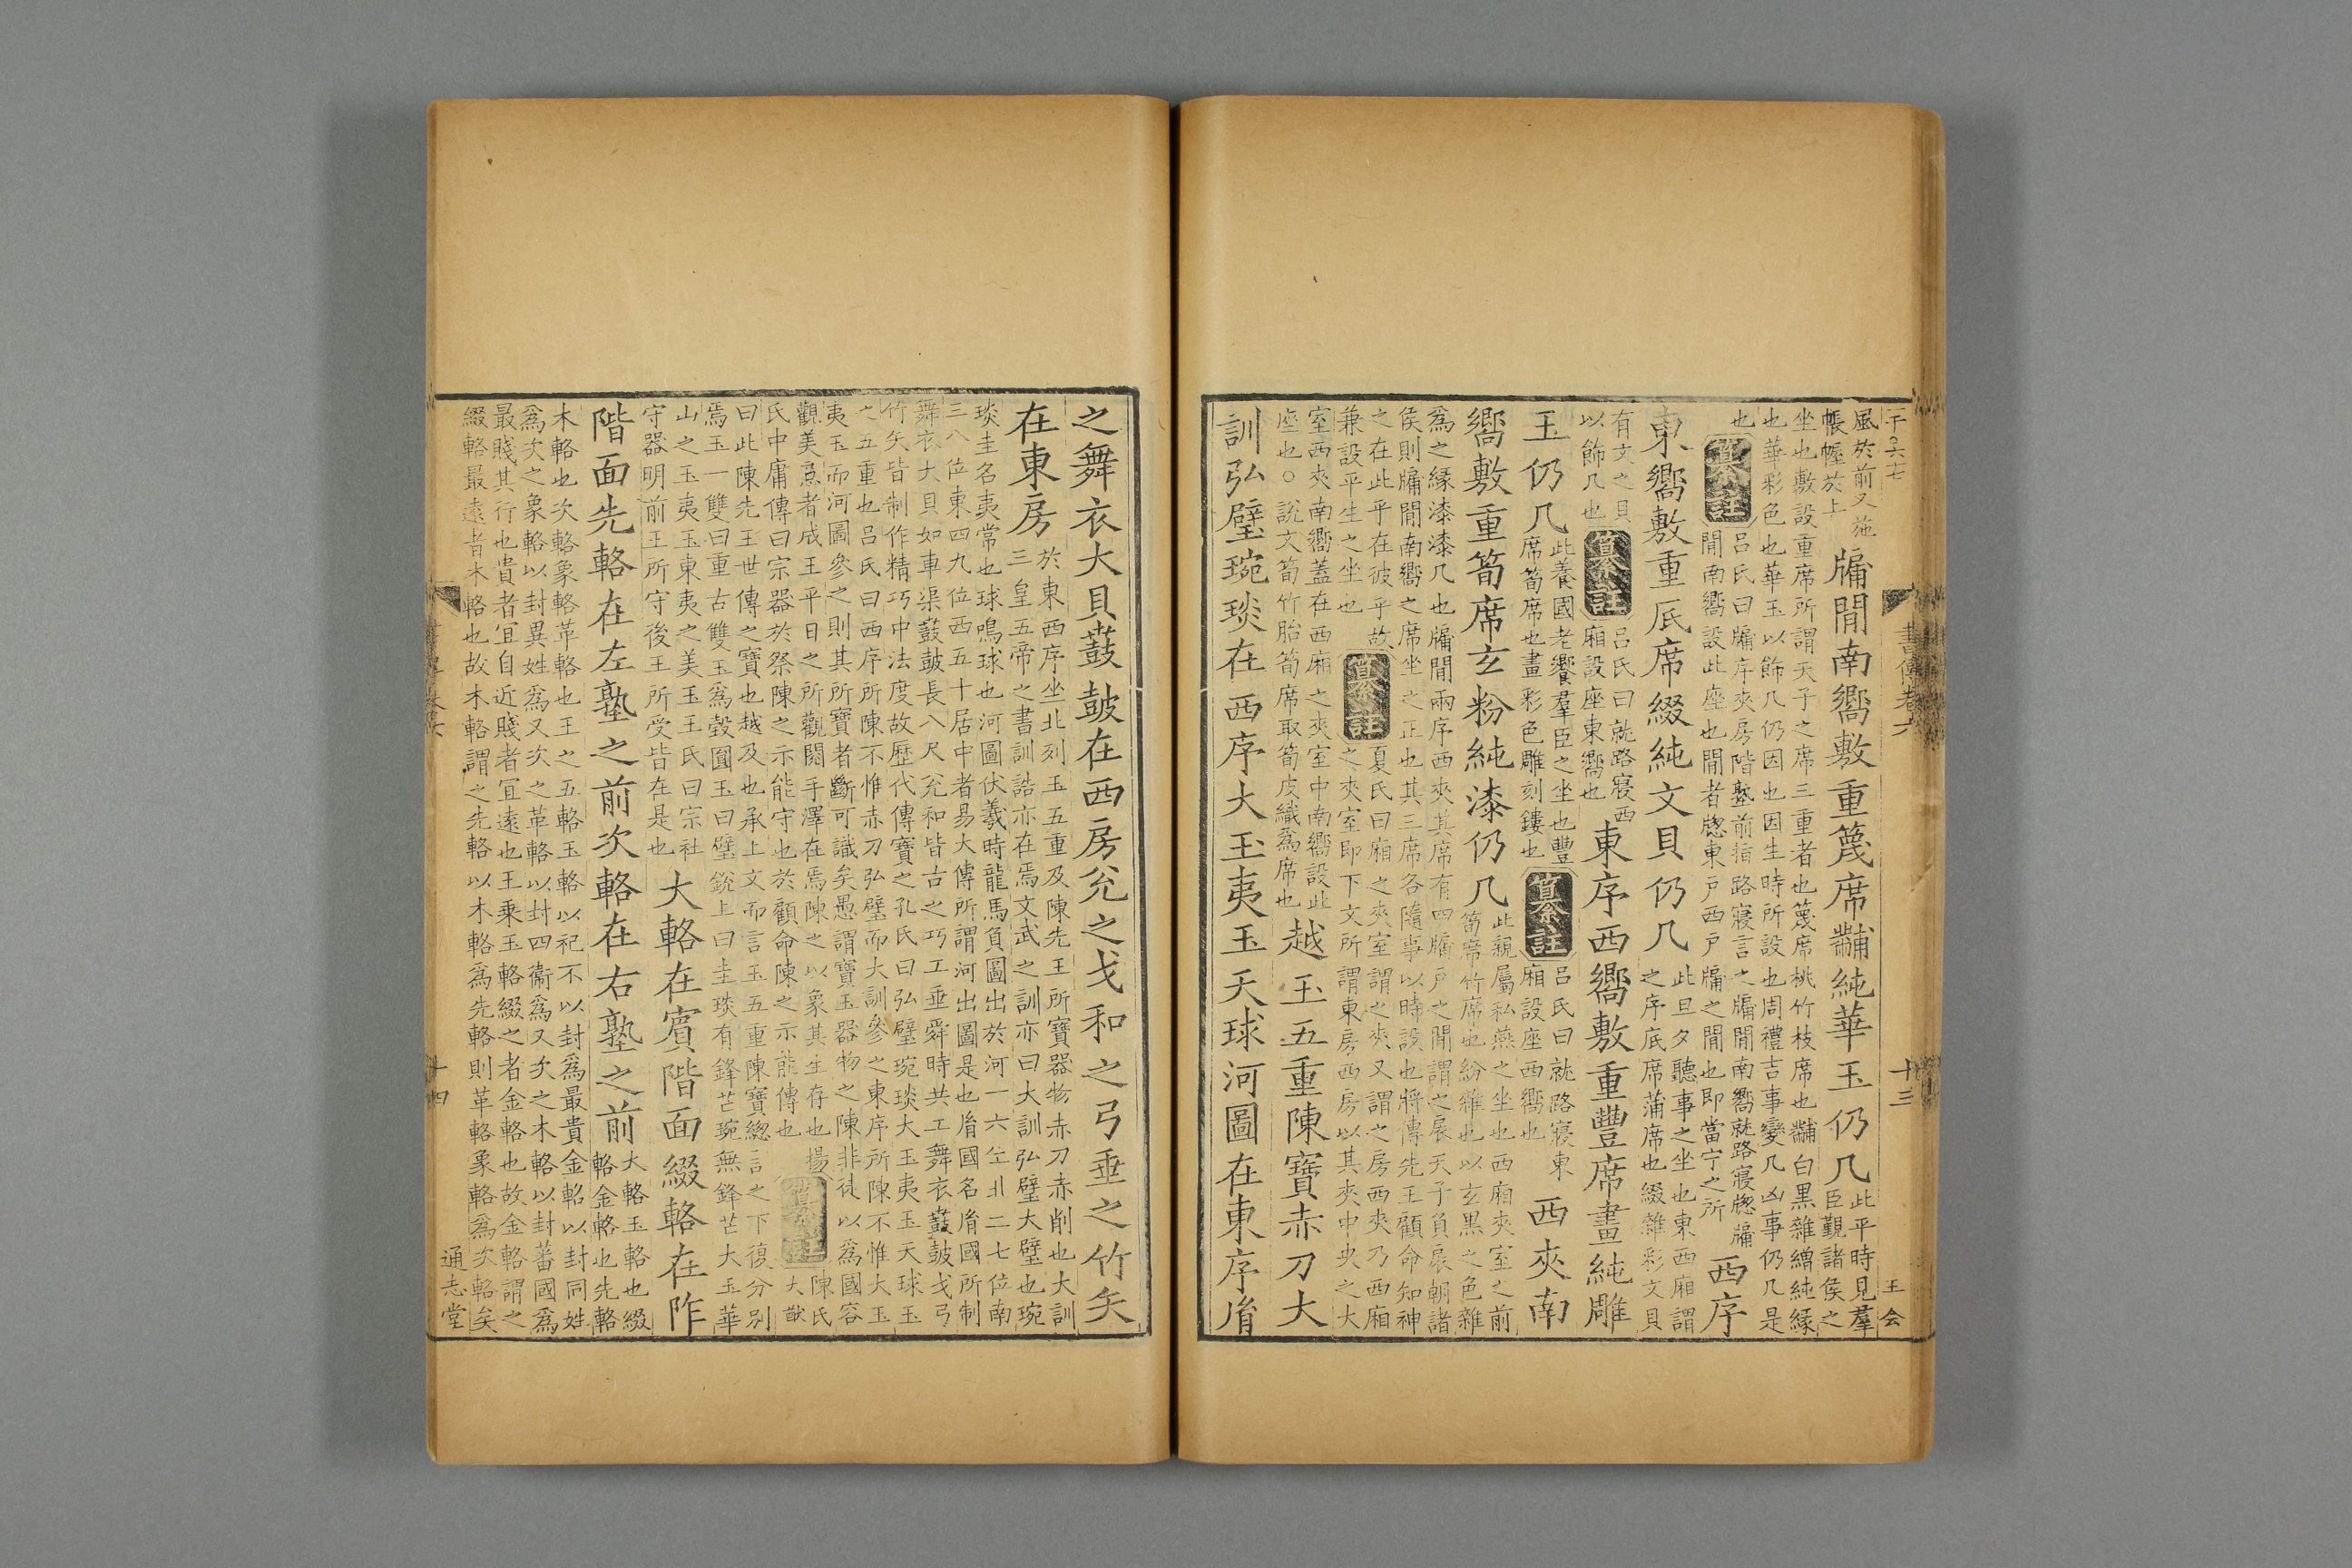 千○六七
書傳卷六
十三
王会
風於前又施
帳幄於上
牖間南嚮敷重篾席黼純華玉仍几
此平時見羣
臣覲諸侯之
坐也敷設重席所謂天子之席三重者也篾席桃竹枝席也黼白黑雜繒純緣
也華彩色也華玉以飾几仍因也因生時所設也周禮吉事變几凶事仍几是
也
纂註
呂氏曰牖序夾房階塾前指路寢言之牖間南嚮就路寢牕牖
間南嚮設此座也間者牕東戶西戶牖之間也即當宁之所
西序
東嚮敷重厎席綴純文貝仍几
此旦夕聽事之坐也東西廂謂
之序底席蒲席也綴雜彩文貝
有文之貝
以飾几也
纂註
呂氏曰就路寢西
廂設座東嚮也
東序西嚮敷重豐席畫純雕
玉仍几
此養國老饗羣臣之坐也豐
席筍席也畫彩色雕刻鏤也
纂註
呂氏曰就路寢東
廂設座西嚮也
西夾南
嚮敷重筍席玄粉純漆仍几
此親屬私燕之坐也西廂夾室之前
筍席竹席也紛雜也以玄黑之色雜
爲之緣漆漆几也牖間兩序西夾其席有四牖戶之間謂之扆天子負扆朝諸
侯則牖間南嚮之席坐之正也其三席各隨事以時設也將傳先王顧命知神
之在此乎在彼乎故
兼設平生之坐也
纂註
夏氏曰廂之夾室謂之夾又謂之房西夾乃西廂
之夾室即下文所謂東房西房以其夾中央之大
室西夾南嚮蓋在西廂之夾室中南嚮設此
座也○說文筍竹胎筍席取筍皮織爲席也
越玉五重陳寶赤刀大
訓弘璧琬琰在西序大玉夷玉天球河圖在東序胤
之舞衣大貝鼖鼓在西房兊之戈和之弓垂之竹矢
在東房
於東西序坐北列玉五重及陳先王所寶器物赤刀赤削也大訓
三皇五帝之書訓誥亦在焉文武之訓亦曰大訓弘璧大璧也琬
琰圭名夷常也球鳴球也河圖伏羲時龍馬負圖出於河一六位北二七位南
三八位東四九位西五十居中者易大傳所謂河出圖是也胤國名胤國所制
舞衣大貝如車渠鼖鼓長八尺兊和皆古之巧工垂舜時共工舞衣鼖鼓戈弓
竹矢皆制作精巧中法度故歷代傳寶之孔氏曰弘璧琬琰大玉夷玉天球玉
之五重也呂氏曰西序所陳不惟赤刀弘璧而大訓參之東序所陳不惟大玉
夷玉而河圖參之則其所寶者斷可識矣愚謂寶玉器物之陳非徒以爲國容
觀美意者成王平日之所觀閱手澤在焉陳之以象其生存也楊
氏中庸傳曰宗器於祭陳之示能守也於顧命陳之示能傳也
纂註
陳氏
大猷
曰此陳先王世傳之寶也越及也承上文而言玉五重陳寶總言之下復分別
焉玉一雙曰重古雙玉爲瑴圓玉曰璧銳上曰圭琰有鋒芒琬無鋒芒大玉華
山之玉夷玉東夷之美玉王氏曰宗社
守器明前王所守後王所受皆在是也
大輅在賓階面綴輅在阼
階面先輅在左塾之前次輅在右塾之前
大輅玉輅也綴
輅金輅也先輅
木輅也次輅象輅革輅也王之五輅玉輅以祀不以封爲最貴金輅以封同姓
爲次之象輅以封異姓爲又次之革輅以封四衛爲又次之木輅以封蕃國爲
最賤其行也貴者宜自近賤者宜遠也王乘玉輅綴之者金輅也故金輅謂之
綴輅最遠者木輅也故木輅謂之先輅以木輅爲先輅則革輅象輅爲次輅矣
十四
通志堂